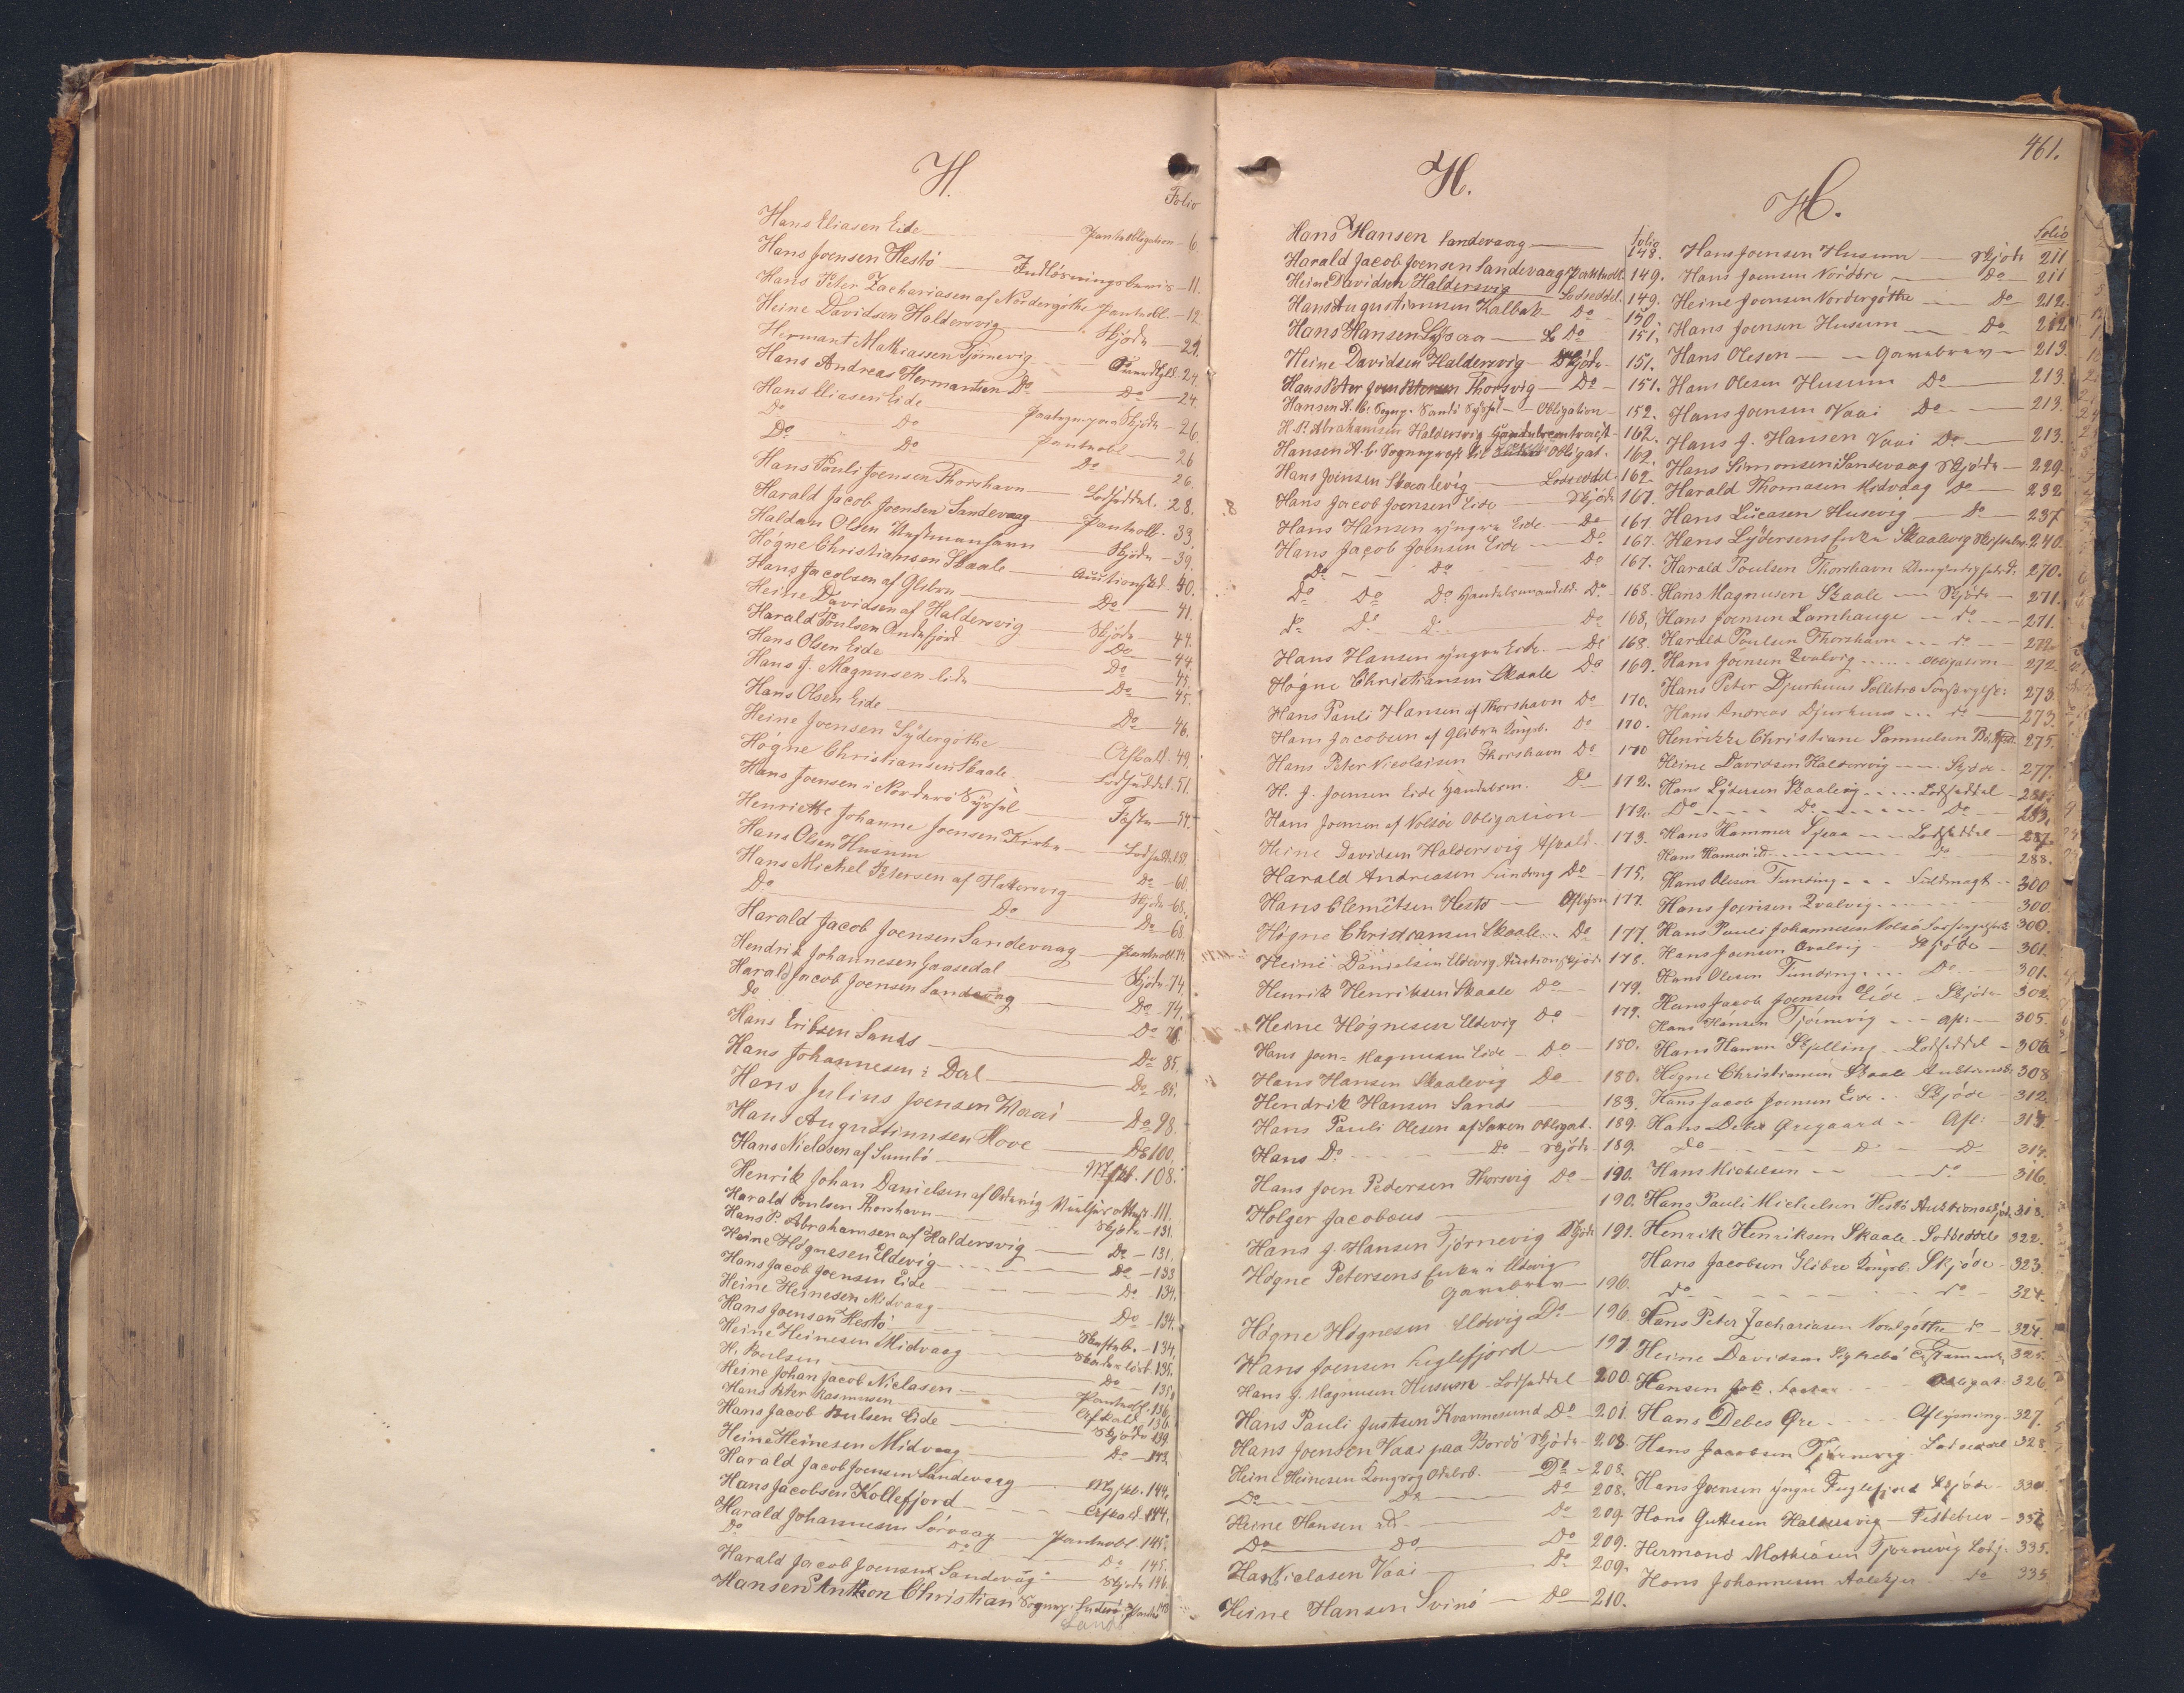 H.
Folio
Hans Eliasen Eide Pantobligation 6.
Hans Joensen Hestö Indlösningsbevis 11.
Hans Peter Zachariasen af Nordergöthe Pantobl. 12.
Heine Davidsen Haldersvig Skjöde 21.
Hermant Mathiassen Tjörnevig 24.
Hans Andreas Hermantsen Do Do 24.
Hans Eliasen Eide Paategn. paa Skjöde 26.
Do Do Pantobl. 26
Do Do Do 26.
Hans Pouli Joensen Thorshavn Lodseddel. 28.
Harald Jacob Joensen Sandevaag Pantobl. 33.
Haldan Olsen Vestmanhavn Skjöde 39.
Högne Christiansen Skaale Auctionsskd. 40.
Hans Jacobsen af Glibre Do 41.
Heine Davidsen af Haldersvig Skjöde 44.
Harald Poulsen Andefjord Do 44.
Hans Olsen Eide Do 45.
Hans J. Magnusen Eide Do 45.
Hans Olsen Eide Do 46.
Heine Joensen Sydergöthe Afkald. 49.
Högne Christiansen Skaale Lodseddel. 51.
Hans Joensen i Norderö Syssel Fæste 54.
Henriette Johanne Joensen Kirke Lodseddel
Hans Olsen Husum Do 60.
Hans Mickel Petersen af Haldersvig Skjöde 68.
Do Do Do 68
Harald Jacob Joensen Sandevaag Pantobl.
Hendrik Johannesen Gaasedal Skjöde 74.
Harald Jacob Joensen Sandevaag Do 74.
Do Do
Hans Eriksen Sands Do 85.
Hans Johannesen i Dal Do 85.
Hans Julius Joensen Waai Do 98
Hans Augustinusen Hove Do 100.
Hans Nielasen af Sumbö 108.
Henrik Johan Danielsen af 111.
Harald Poulsen Thorshavn Skjöde 131.
Hans P. Abrahamsen af Haldersvig Do 131.
Heine Högnesen Eldevig Do 133
Hans Jacob Joensen Eide Do 134.
Heine Heinesen Midvaag Do 134.
Hans Joensen Hestö 134.
Heine Heinesen Midvaag 135.
H. Poulsen Do 135.
Heine Johan Jacob Nielasen Pantobl. 136.
Hans Peter Rasmusen Afkald. 136.
Hans Jacob Poulsen Eide Skjöde 139.
Heine Heinesen Midvaag Do 143.
Harald Jacob Joensen Sandevaag 144.
Hans Jacobsen Kollefjord Afkald. 144.
Harald Johannesen Sörvaag Pantobl. 145.
Do Do Do 145.
Harald Jacob Joensen Sandevåg Skjöde 146.
Hansen Anthon Christian Sognep. Suderö
Sandö
H.
Folio
Hans Hansen Sandevaag 148.
Harald Jacob Joensen Sandevaag Pantobl. 149.
Heine Davidsen Haldersvig Lodseddel. 149.
Hans Augustinusen Kalbak Do 150.
Hans Hansen Lýsaa Do 151.
Heine Davidsen Haldersvig Skjöde 151.
Hans Peter Joen Petersen Thorsvig Do 151.
Hansen A. C. Sognep. Sandö Syssel Obligation 152.
H. P. Abrahamsen Haldersvig Handelscontract 162.
Hansen A. C. Sognepræst Obligat. 162.
Hans Joensen Skaalevig Lodseddel. 162.
Hans Jacob Joensen Eide Skjöde 167.
Hans Hansen yngre Eide Do 167.
Hans Jacob Joensen Eide Do 167.
Do Do Do 167.
Do Do Do Do 168.
Do Do Do Do 168.
Hans Hansen yngre Eide Do 168.
Högne Christiansen Skaale Do 169.
Hans Pauli Hansen af Thorshavn Do 170.
Hans Jacobsen af Glibre Do 170.
Hans Peter Nicolaisen Thorshavn Do 170
H. J. Joensen Eide Handelsm. Do 172.
Hans Joensen af Nolsöe Obligation 172.
Heine Davidsen Haldersvig Afkald 173.
Harald Andreasen Funding Do 175.
Hans Clemetsen Hestö 177.
Högne Christiansen Skaale Do 177.
Heine Danielsen Eldevig Auctionsskjöde 178.
Henrik Henriksen Skaale Do 179.
Heine Högnesen Eldevig Do 179.
Hans Joen Magnusen Eide Do 180.
Hans Hansen Skaalevig Do 180.
Hendrik Hansen Sands 183.
Hans Pauli Olesen af Saxen Obligat. 189.
Hans Do Do Skjöde 189.
Hans Joen Pedersen Thorsvig Do 190.
Holger Jacobæus 190.
Hans J. Hansen Tjörnevig Skjöde 191.
Högne Petersens Enke i Eldevig
Gavebrev 196.
Högne Högnesen Eldevig Do 196.
Hans Joensen Fuglefjord 197
Hans J. Magnusen Husum Lodseddel 200.
Hans Pauli Justsen Kvannesund Do 201.
Hans Joensen Vaai paa Bordö Skjöde 208.
Heine Heinesen Do 208.
Do Do Do 208.
Heine Hansen Do 209
Do Do Do 209.
Hans Nielasen Vaai Do 209.
Heine Hansen Svinö Do 210.
461.
H.
Folio
Hans Joensen Husum Skjöde 211
Hans Joensen Nordöre Do 211
Heine Joensen Nordergöthe Do 212.
Hans Joensen Husum Do 212
Hans Olesen Gavebrev 213.
Hans Olesen Husum Do 213.
Hans Joensen Vaai Do 213.
Hans J. Hansen Vaai Do 213.
Hans Simonsen Sandevaag Skjöde 229.
Harald Thomasen Midvaag Do 232
Hans Lucasen Husevig Do 237
Hans Lydersens Enke Skaalevig 240.
Harald Poulsen Thorshavn 270.
Hans Magnusen Skaale Skjöde 271.
Hans Joensen Lamhauge do 271.
Harald Poulsen Thorshavn do 272.
Hans Joensen Qvalvig Obligation 272.
Hans Peter Djurhuus Selletræ 273.
Hans Andreas Djurhuus do 273.
Henrikke Christiane Samuelsen 275.
Heine Davidsen Haldersvig Skjöde 277.
Hans Lydersen Skaalevig Lodseddel 281.
Do Do Do 283.
Hans Hammer Lodseddel 287.
288.
Hans Olesen Funding Fuldmagt 300
Hans Joensen Qvalvig 300.
Hans Pauli Johannesen Nolsö 300.
Hans Joensen Qvalvig Skjöde 301.
Hans Olesen Funding Do 301.
Hans Jacob Joensen Eide Skjöde 302.
Hans Hansen Tjörnevig Afk: 305.
Hans Hansen Skjelling Lodseddel 306
Högne Christiansen Skaale 308
Hans Jacob Joensen Eide Skjöde 312.
Hans Debes Öregaard Afl: 314.
Do D. D. 314.
Hans Michelsen do 316.
Hans Pauli Michelsen Hestö Auktionsskjöde 318.
Henrik Henriksen Skaale Lodseddel 322.
Hans Jacobsen Glibre Skjöde 323.
do do 324.
Hans Peter Zachariasen Nordgöthe do 324.
Heine Davidsen Testament 325.
Hansen Joh. Obligat: 326.
Hans Debes Öre Aflysning 327.
Hans Jacobsen Tjörnevig Lodseddel 328.
Hans Joensen yngre Fuglefjord Skjöde 330.
Hans Guttesen Haldersvig Festebrev
Hermand Mathiasen Tjörnevig Lods. 335.
Hans Johannesen do 335